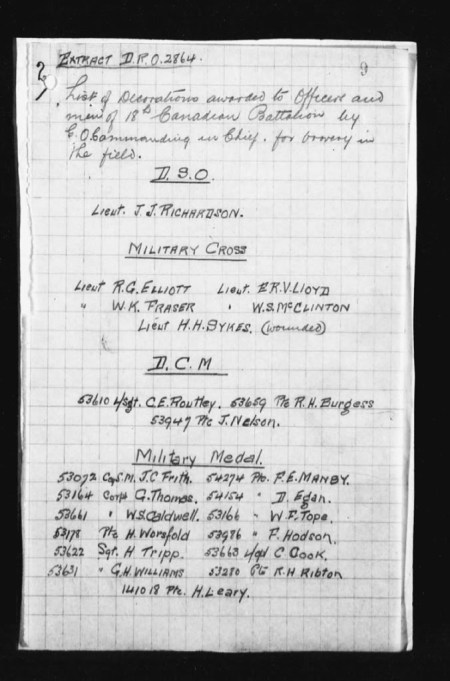 2/
9
EXTRACT D.R.O. 2864.
List of Decorations awarded to Officers and
men of 18th Canadian Battalion by
G.O.Commanding in Chief. for bravery in
the field.
D.S.O.
Lieut. J.J. RICHARDSON.
MILITARY CROSS
Lieut R.G. ELLIOTT Lieut. E.R.V. LLOYD
" W.K. FRASER " W.S. McCLINTON
Lieut H.H. SYKES. (wounded)
D.C.M
53610 L/Sgt. C.E. Routley. 53659 Pte R.H. Burgess
53947 Pte J. Nelson.
Military Medal.
53072 C.S.M. J.C. Frith. 54274 Pte. F.E. MANBY.
53164 Corpl G. Thomas. 54154 " D. Egan.
53661 " W.S. Caldwell. 53166 " W.F. Tope.
53178 Pte H. Worsfold 53986 " F. Hodson.
53622 Sgt. H Tripp. 53663 L/Cpl C Cook.
53631 " G.H. WILLIAMS 53280 Pte R.H Ribton
141018 Pte. H. Leary.